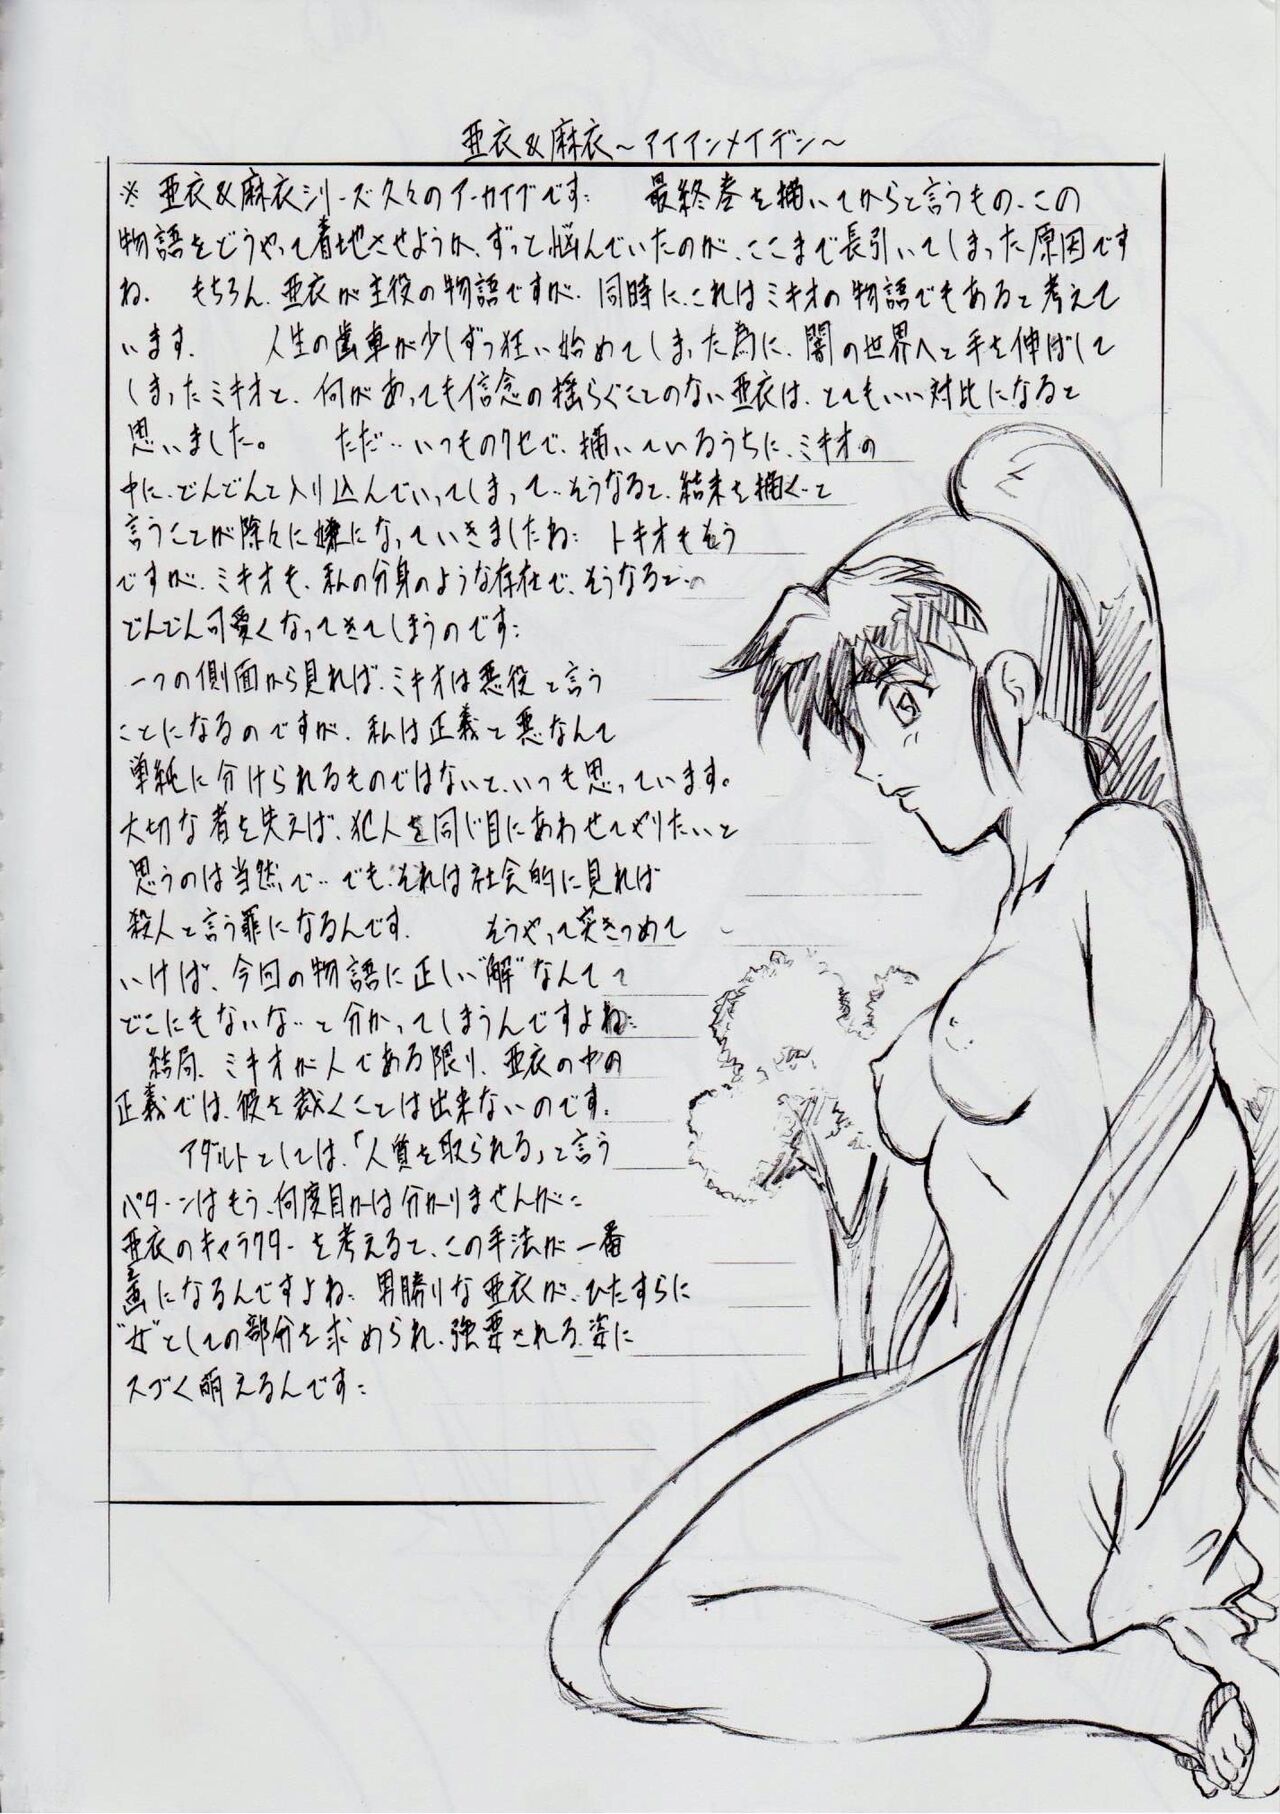 亜衣&麻衣～アイアンメイデン～
※ 亜衣&麻衣シリーズ久々のアーカイブです: 最終巻を描いてからと言うもの、この
物語をどうやって着地させようか、ずっと悩んでいたのが、ここまで長引いてしまった原因です
ね. もちろん、亜衣が主役の物語ですが、同時に、これはミキオの物語でもあると考えて
います. 人生の歯車が少しずつ狂い始めてしまった為に、闇の世界へと手を伸ばして
しまったミキオと、何があっても信念の揺らぐことのない亜衣は、とてもいい対比になると
思いました。 ただ‥いつものクセで、描いているうちに、ミキオの
中に、どんどんと入り込んでいってしまって‥そうなると、結末を描く‥と
言うことが除々に嫌になっていきましたね: トキオもそう
ですが、ミキオも、私の分身のような存在で、そうなると‥
どんどん可愛くなってきてしまうのです:
一つの側面から見れば、ミキオは悪役と言う
ことになるのですが、私は正義と悪なんて
単純に分けられるものではないと、いつも思っています。
大切な者を失えば、犯人を同じ目にあわせてやりたいと
思うのは当然で‥でも、それは社会的に見れば
殺人と言う罪になるんです. そうやって突きつめて
いけば、今回の物語に正しい"解"なんて
どこにもないな‥と分かってしまうんですよね:
結局、ミキオが人である限り、亜衣の中の
正義では、彼を裁くことは出来ないのです:
アダルトとしては、「人質を取られる」と言う
パターンはもう、何度目かは分かりませんが:
亜衣のキャラクターを考えると、この手法が一番
画になるんですよね: 男勝りな亜衣が、ひたすらに
"女"としての部分を求められ、強要される姿に
スゴく萌えるんです: